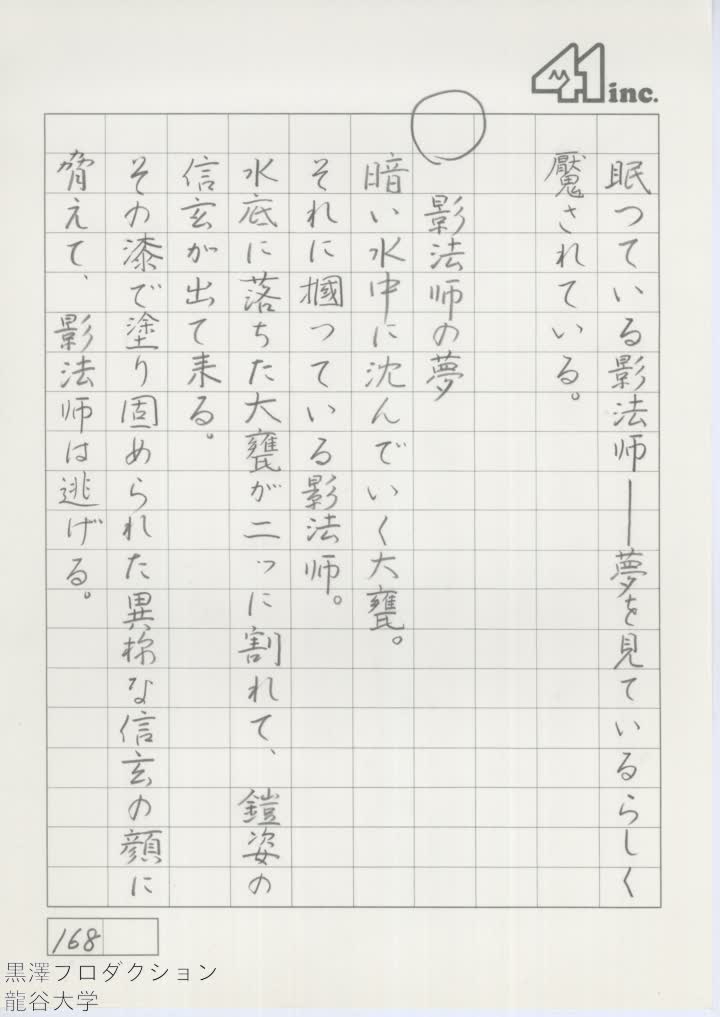 41 inc.
眠つている影法師――夢を見ているらしく
魘されている。
影法師の夢
暗い水中に沈んでいく大甕。
それに摑っている影法師。
水底に落ちた大甕が二つに割れて、鎧姿の
信玄が出て来る。
その漆で塗り固められた異様な信玄の顔に
脅えて、影法師は逃げる。
168
黒澤プロダクション
龍谷大学